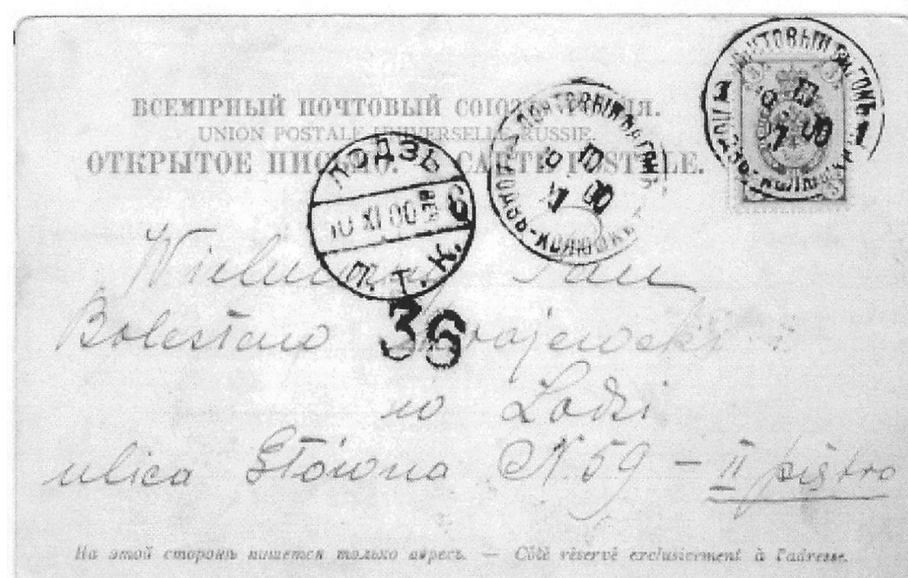 ВСЕМІРНЫЙ ПОЧТОВЫЙ СОЮЗ.
UNION POSTALE UNIVERSELLE. RUSSIE.
ОТКРЫТОЕ ПИСЬМО. CARTE POSTALE.
ПОЧТОВЫЙ ВАГОНЪ
1 1
7 XI 00
ПОЧТОВЫЙ ВАГОНЪ
7 XI 00
ЛОДЗЬ
10 XI 00 6
П. Т. К.
36
Pan
Bolesław
w Łodzi
ulica Główna N. 59 – II piętro
На этой сторонѣ пишется только адресъ. — Côté réservé exclusivement à l'adresse.